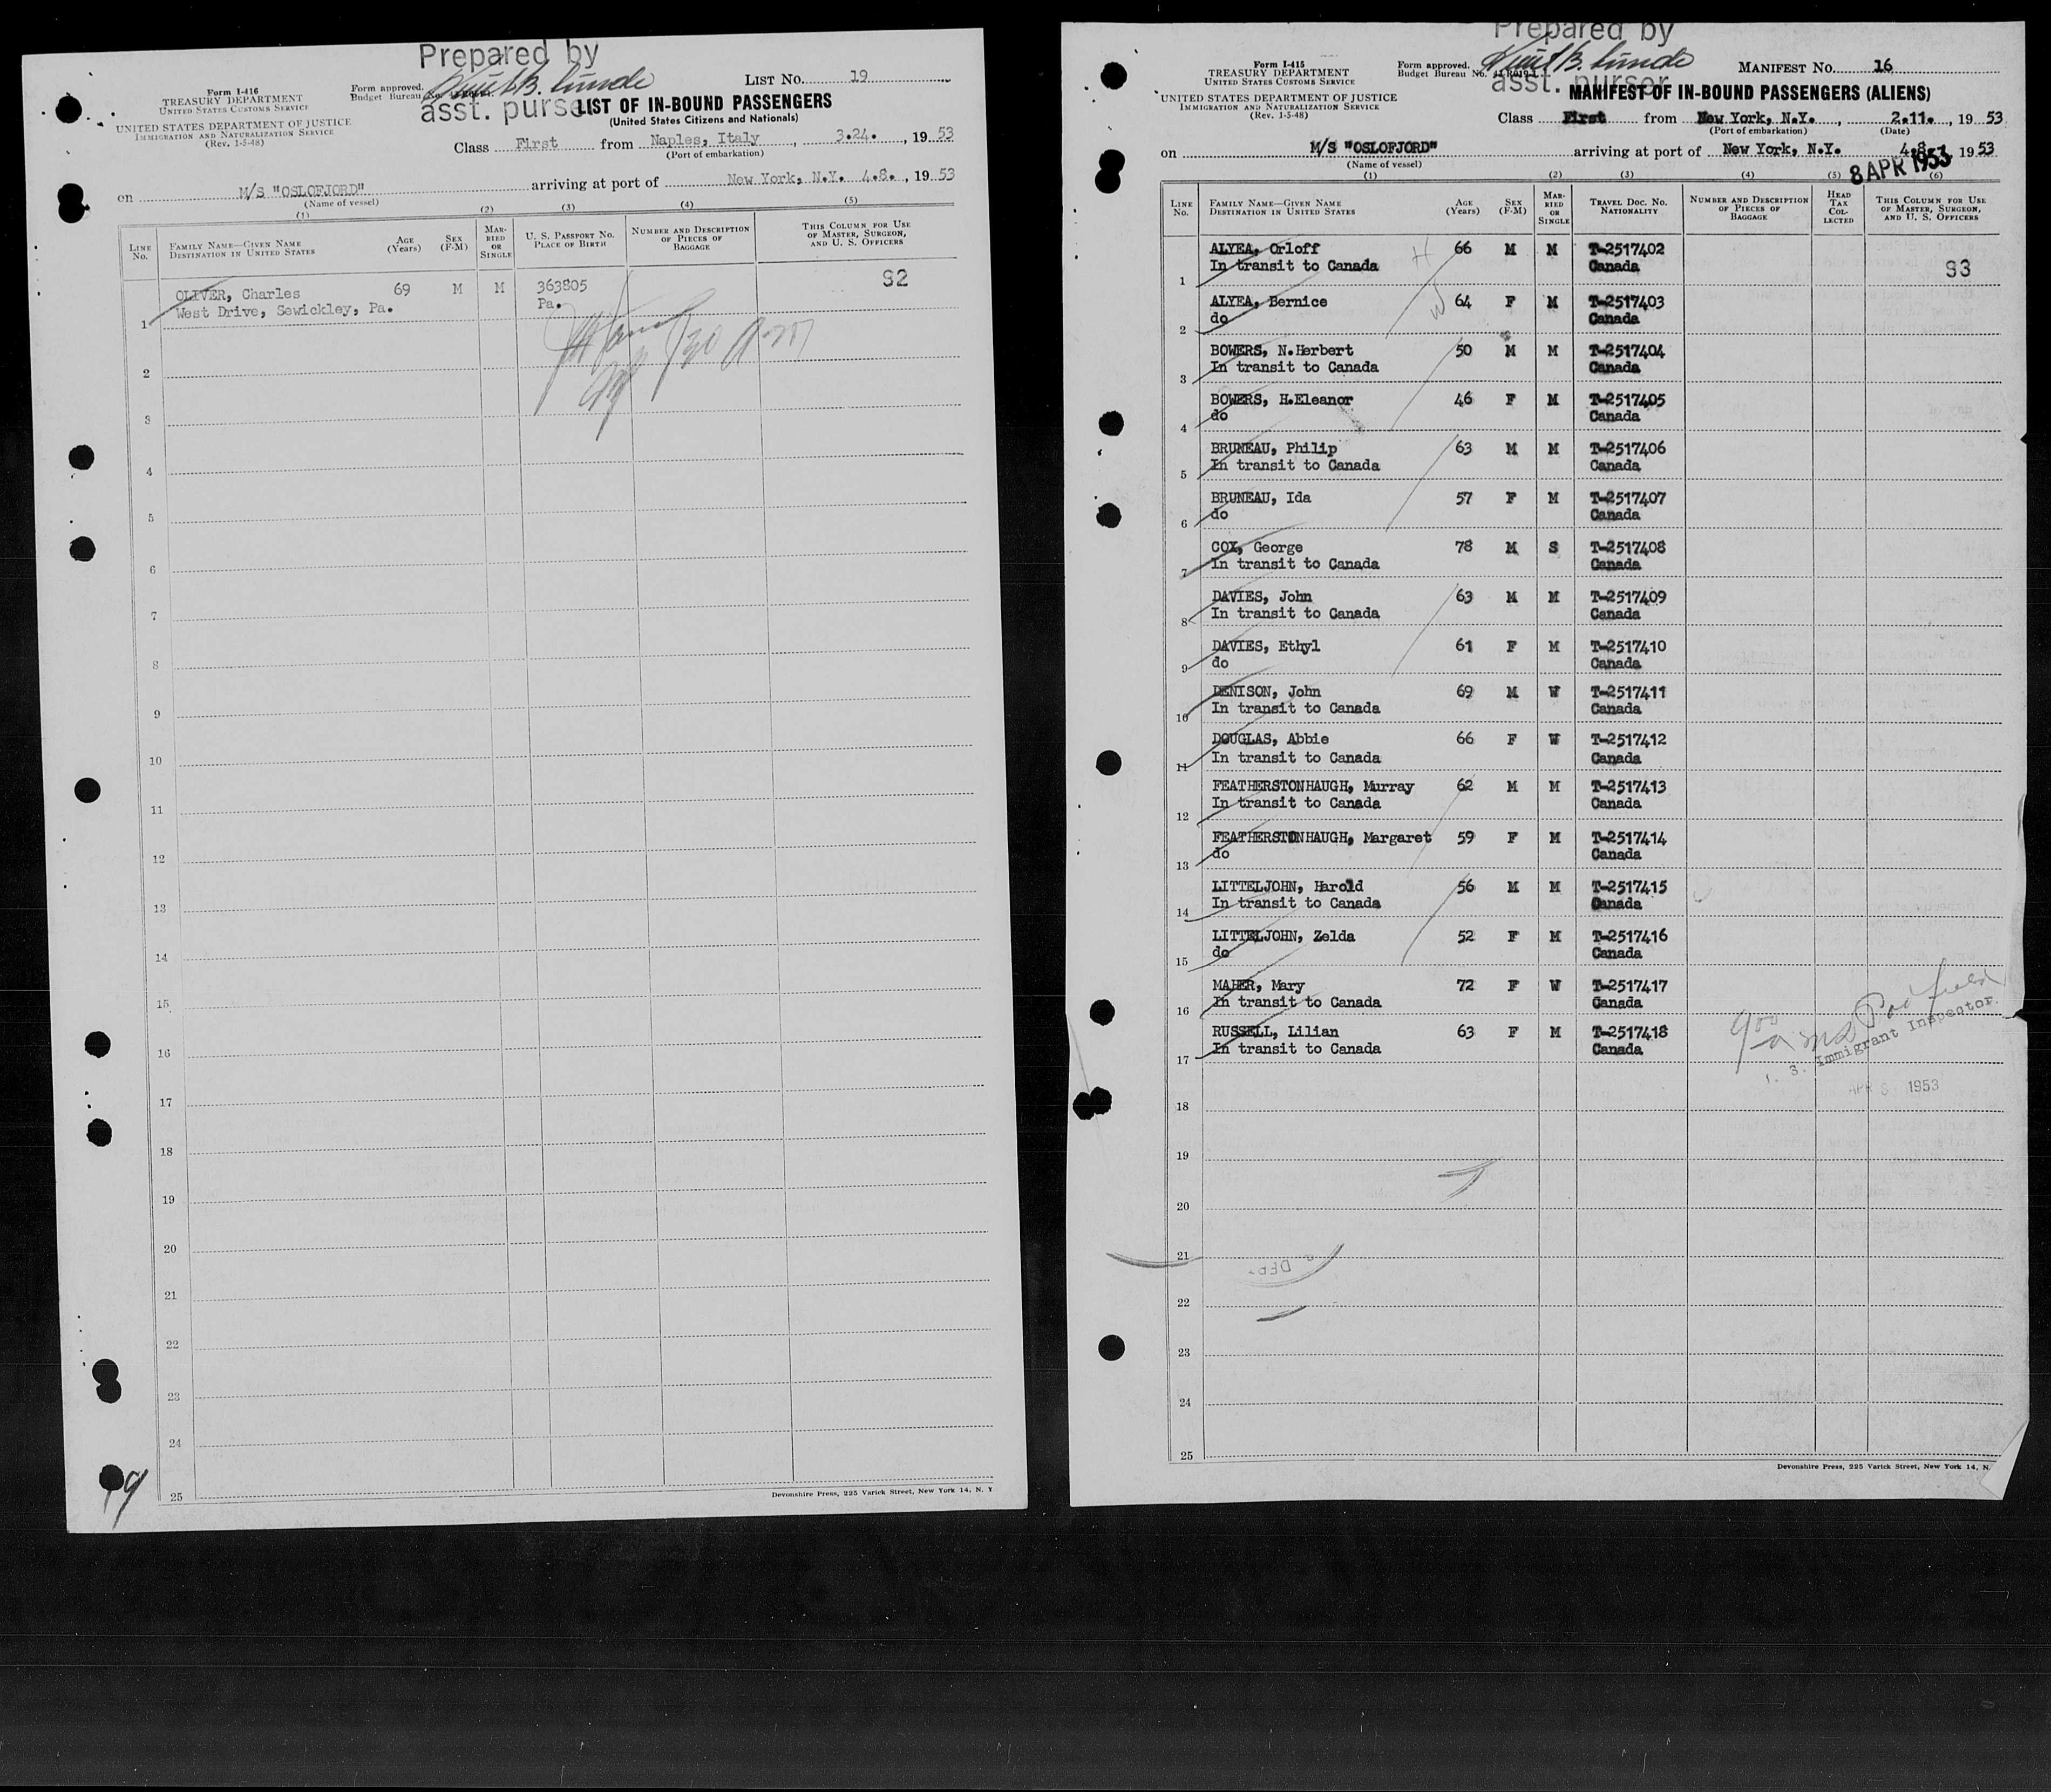 Prepared by
asst. purser
Form I-416
TREASURY DEPARTMENT
UNITED STATES CUSTOMS SERVICE
UNITED STATES DEPARTMENT OF JUSTICE
IMMIGRATION AND NATURALIZATION SERVICE
(Rev. 1-5-48)
Form approved.
Budget Bureau No.
LIST No. 19
LIST OF IN-BOUND PASSENGERS
(United States Citizens and Nationals)
Class First from Naples, Italy, 3.24., 1953
(Port of embarkation)
on M/S "OSLOFJORD" arriving at port of New York, N.Y. 4.8., 1953
(Name of vessel)
(1) (2) (3) (4) (5)
LINE No. FAMILY NAME—GIVEN NAME DESTINATION IN UNITED STATES AGE (Years) SEX (F-M) MARRIED OR SINGLE U. S. PASSPORT No. PLACE OF BIRTH NUMBER AND DESCRIPTION OF PIECES OF BAGGAGE THIS COLUMN FOR USE OF MASTER, SURGEON, AND U. S. OFFICERS
92
OLIVER, Charles 69 M M 363805
1 West Drive, Sewickley, Pa. Pa.
2
3
4
5
6
7
8
9
10
11
12
13
14
15
16
17
18
19
20
21
22
23
24
25
19
Devonshire Press, 225 Varick Street, New York 14, N. Y
Prepared by
asst. purser
Form I-415
TREASURY DEPARTMENT
UNITED STATES CUSTOMS SERVICE
UNITED STATES DEPARTMENT OF JUSTICE
IMMIGRATION AND NATURALIZATION SERVICE
(Rev. 1-5-48)
Form approved.
Budget Bureau No.
MANIFEST No. 16
MANIFEST OF IN-BOUND PASSENGERS (ALIENS)
Class First from New York, N.Y., 2.11., 1953
(Port of embarkation) (Date)
on M/S "OSLOFJORD" arriving at port of New York, N.Y. 4.8. 1953
(Name of vessel)
8 APR 1953
(1) (2) (3) (4) (5) (6)
LINE No. FAMILY NAME—GIVEN NAME DESTINATION IN UNITED STATES AGE (Years) SEX (F-M) MARRIED OR SINGLE TRAVEL DOC. NO. NATIONALITY NUMBER AND DESCRIPTION OF PIECES OF BAGGAGE HEAD TAX COLLECTED THIS COLUMN FOR USE OF MASTER, SURGEON, AND U. S. OFFICERS
93
ALYEA, Orloff H 66 M M T-2517402
1 In transit to Canada Canada
ALYEA, Bernice W 64 F M T-2517403
2 do Canada
BOWERS, N.Herbert 50 M M T-2517404
3 In transit to Canada Canada
BOWERS, H.Eleanor 46 F M T-2517405
4 do Canada
BRUNEAU, Philip 63 M M T-2517406
5 In transit to Canada Canada
BRUNEAU, Ida 57 F M T-2517407
6 do Canada
COX, George 78 M S T-2517408
7 In transit to Canada Canada
DAVIES, John 63 M M T-2517409
8 In transit to Canada Canada
DAVIES, Ethyl 61 F M T-2517410
9 do Canada
DENISON, John 69 M W T-2517411
10 In transit to Canada Canada
DOUGLAS, Abbie 66 F W T-2517412
11 In transit to Canada Canada
FEATHERSTONHAUGH, Murray 62 M M T-2517413
12 In transit to Canada Canada
FEATHERSTONHAUGH, Margaret 59 F M T-2517414
13 do Canada
LITTELJOHN, Harold 56 M M T-2517415
14 In transit to Canada Canada
LITTELJOHN, Zelda 52 F M T-2517416
15 do Canada
MAHER, Mary 72 F W T-2517417
16 In transit to Canada Canada
RUSSELL, Lilian 63 F M T-2517418
17 In transit to Canada Canada
Immigrant Inspector.
APR 8 1953
18
19
20
21
22
23
24
25
Devonshire Press, 225 Varick Street, New York 14, N.